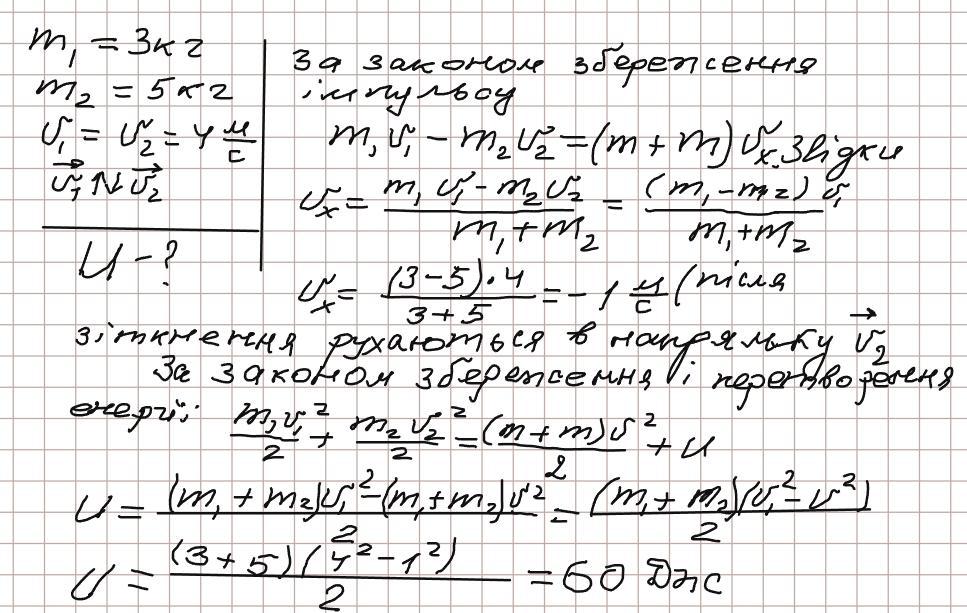 m₁ = 3кг
m₂ = 5кг
υ₁ = υ₂ = 4 м/с
υ⃗₁ ⇅ υ⃗₂
U - ?
За законом збереження
імпульсу
m₁υ₁ - m₂υ₂ = (m + m) υₓ. Звідки
υₓ = (m₁υ₁ - m₂υ₂)/(m₁ + m₂) = ((m₁ - m₂) υ₁)/(m₁ + m₂)
υₓ = ((3 - 5) · 4)/(3 + 5) = - 1 м/с (після
зіткнення рухаються в напрямку υ⃗₂
За законом збереження і перетворення
енергії: m₁υ₁²/2 + m₂υ₂²/2 = (m + m)υ²/2 + U
U = ((m₁ + m₂)υ₁² - (m₁ + m₂)υ²)/2 = ((m₁ + m₂)(υ₁² - υ²))/2
U = ((3 + 5)(4² - 1²))/2 = 60 Дж